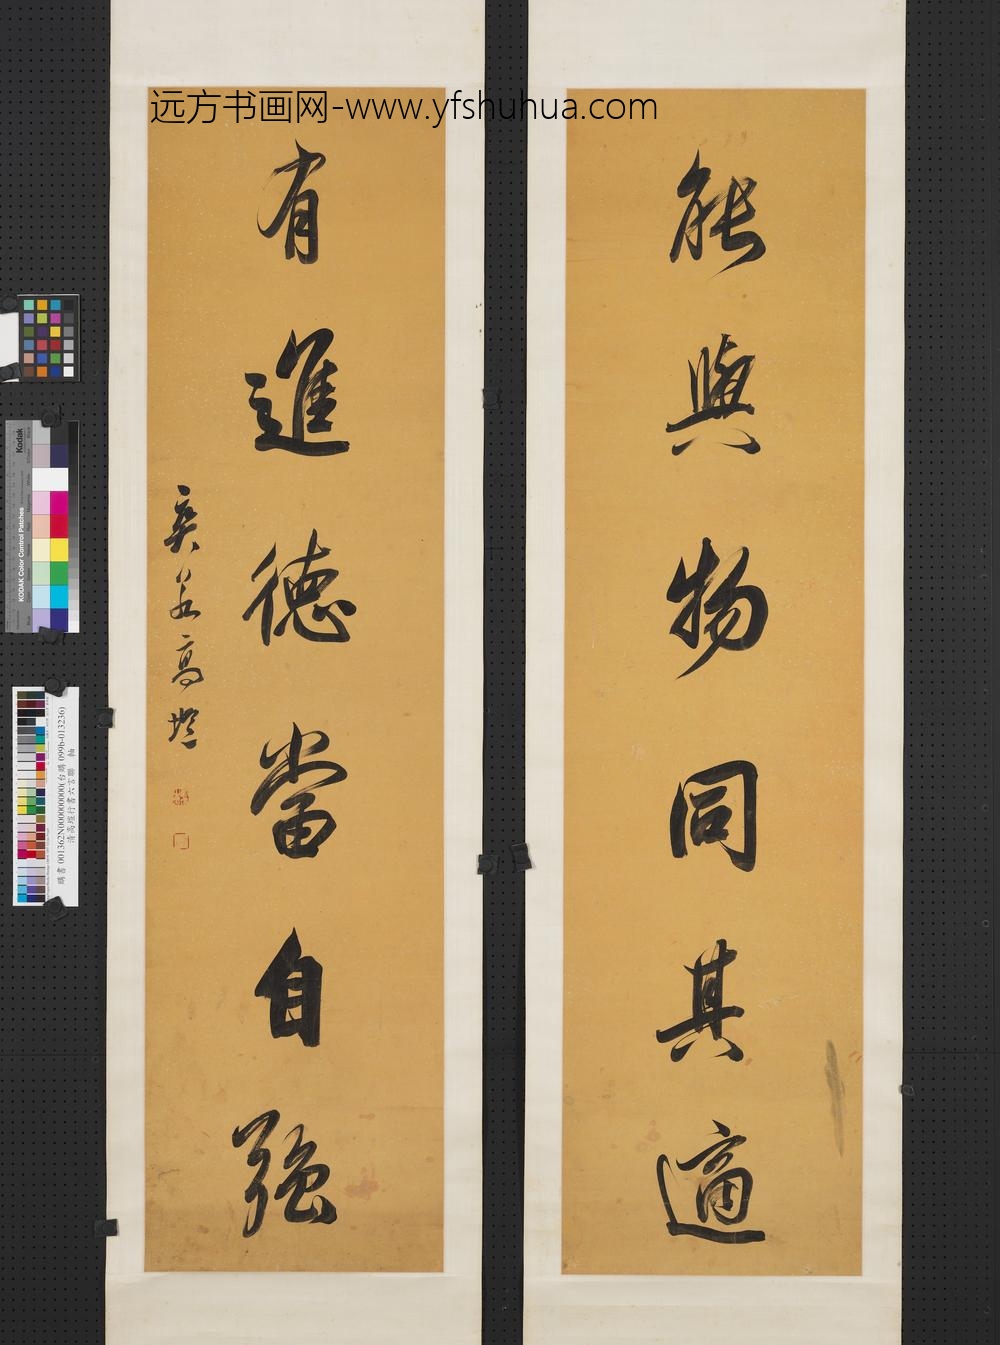 远方书画网-www.yfshuhua.com
能與物同其適
有進德當自強
奕若高塏
Kodak
KODAK Color Control Patches
購書 001362N000000000(台購 099b-013236)
清高塏行書六言聯 軸